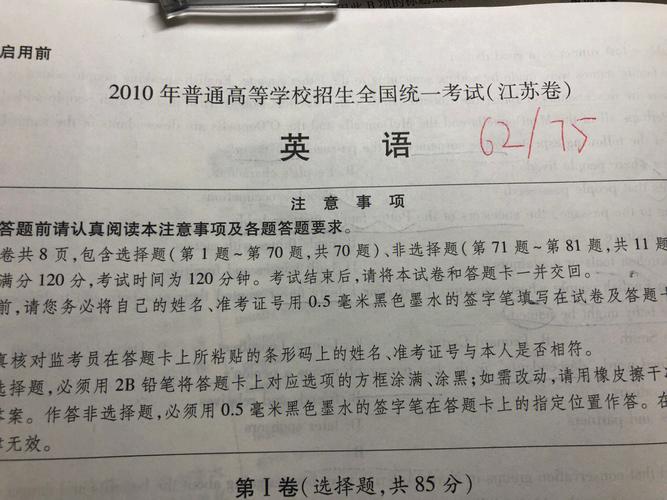 启用前
2010年普通高等学校招生全国统一考试(江苏卷)
英 语 62/75
注意事项
答题前请认真阅读本注意事项及各题答题要求。
卷共8页,包含选择题(第1题~第70题,共70题)、非选择题(第71题~第81题,共11题
满分120分,考试时间为120分钟。考试结束后,请将本试卷和答题卡一并交回。
前,请您务必将自己的姓名、准考证号用0.5毫米黑色墨水的签字笔填写在试卷及答题卡
真核对监考员在答题卡上所粘贴的条形码上的姓名、准考证号与本人是否相符。
选择题,必须用2B铅笔将答题卡上对应选项的方框涂满、涂黑;如需改动,请用橡皮擦干
答案。作答非选择题,必须用0.5毫米黑色墨水的签字笔在答题卡上的指定位置作答。在
无效。
第Ⅰ卷(选择题,共85分)